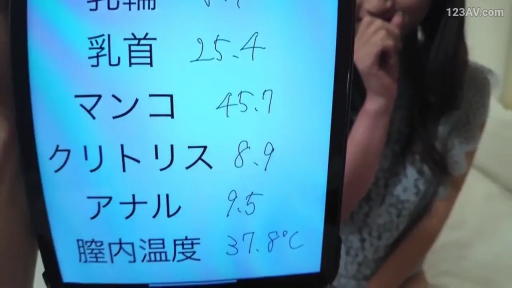 123AV.com
乳輪
乳首 25.4
マンコ 45.7
クリトリス 8.9
アナル 9.5
膣内温度 37.8℃